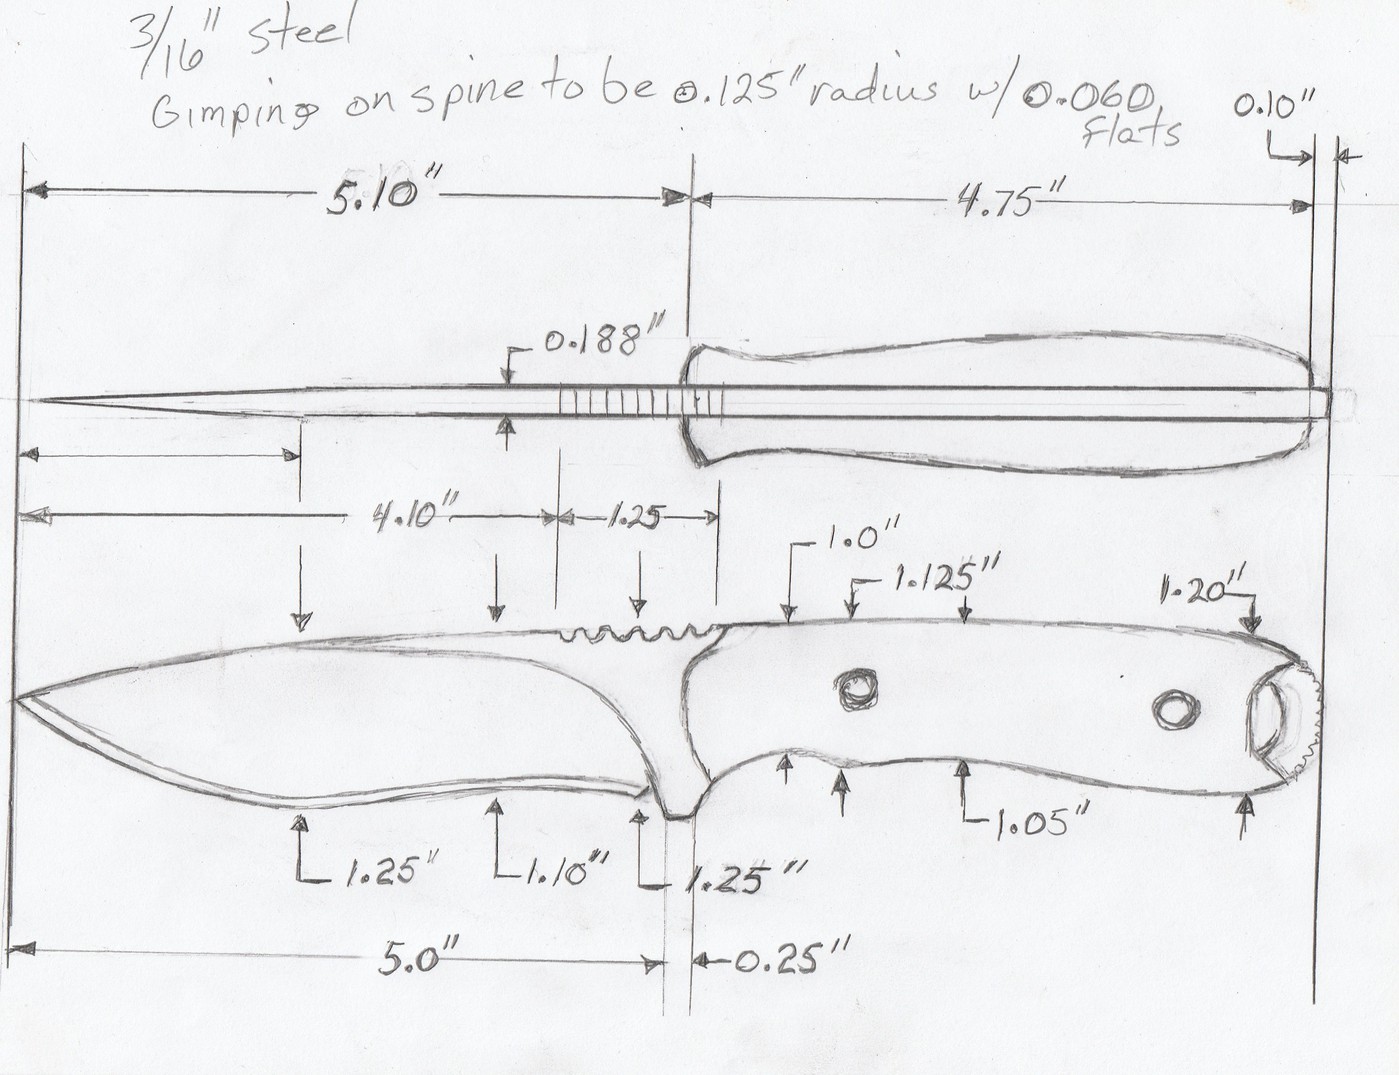 3/16" steel
Gimping on spine to be 0.125" radius w/ 0.060
flats
0.10"
5.10"
4.75"
0.188"
4.10"
1.25
1.0"
1.125"
1.20"
1.05"
1.25"
1.10"
1.25"
5.0"
0.25"